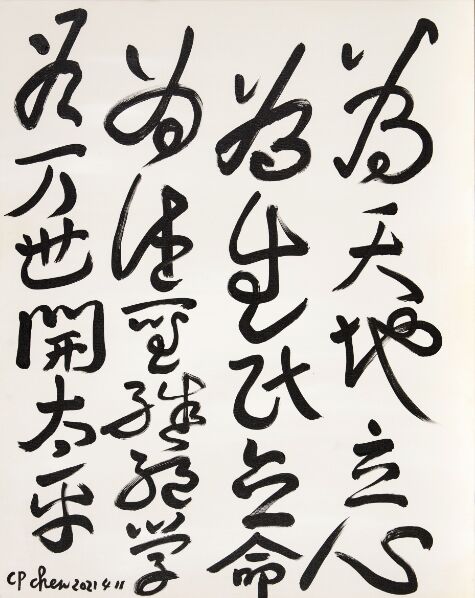 為天地立心
為生民立命
為往聖继絕学
為万世開太平
CP chen 2021 4 11